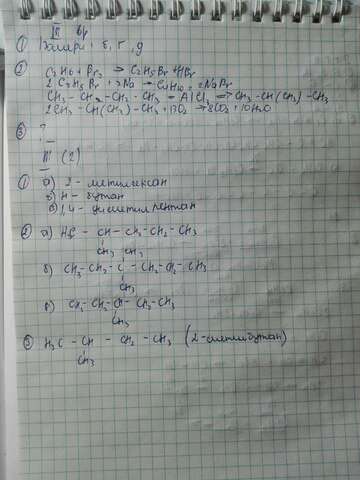 III вр
① Валери, б, г, д
② C₂H₆ + Br₂ → C₂H₅Br + HBr
2 C₂H₅Br + 2Na → C₄H₁₀ + 2NaBr
CH₃ - CH₂ - CH₂ - CH₃ = AlCl₃ => CH₃ - CH(CH₃) - CH₃
2CH₃ - CH(CH₃) - CH₃ + 13O₂ → 8CO₂ + 10H₂O
③ ?
III (2)
① а) 2 - метилгексан
б) н - бутан
в) 1,4 - диметилпентан
② а) H₃C - CH - CH₂ - CH₂ - CH₃
CH₃ CH₃
б) CH₃ - CH₂ - C - CH₂ - CH₂ - CH₃
CH₃
в) CH₃ - CH₂ - CH - CH₂ - CH₃
CH₃
③ H₃C - CH - CH₂ - CH₃ (2-метилбутан)
CH₃